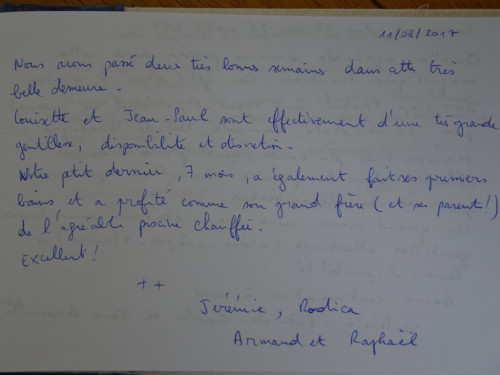 11/08/2017
Nous avons passé deux très bonnes semaines dans cette très
belle demeure.
Louisette et Jean-Paul sont effectivement d'une très grande
gentillesse, disponibilité et discretion.
Notre ptit dernier, 7 mois, a également fait ses premiers
bains et a profité comme son grand frère (et ses parents!)
de l'agréable piscine chauffée.
Excellent!
++
Jérémie, Rodica
Armand et Raphaël